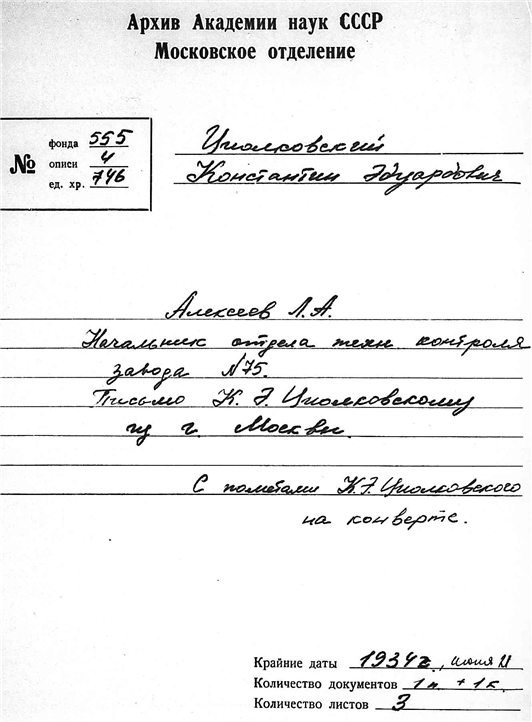 Архив Академии наук СССР
Московское отделение
№
фонда 555
описи 4
ед. хр. 746
Циолковский
Константин Эдуардович
Алексеев Л.А.
Начальник отдела техн контроля
завода №75.
Письмо К. Э. Циолковскому
из г. Москвы.
С пометами К.Э. Циолковского
на конверте.
Крайние даты 1934г., июня 21
Количество документов 1п. + 1к.
Количество листов 3